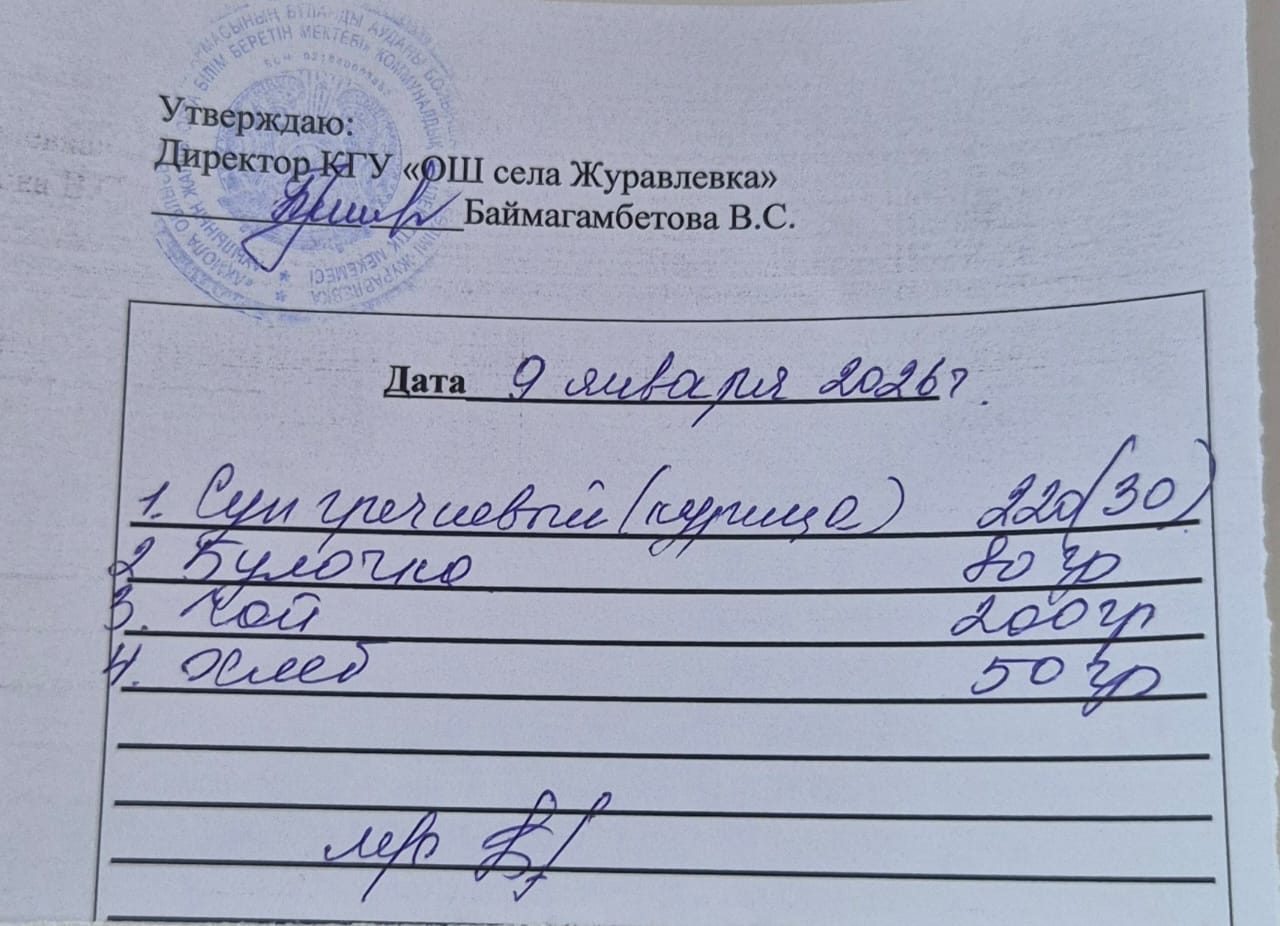 Утверждаю:
Директор КГУ «ОШ села Журавлевка»
Баймагамбетова В.С.
Дата 9 января 2026г.
1. Суп гречневый (курица) 220(30)
2 Булочка 80 гр
3. Чай 200гр
4. Хлеб 50 гр